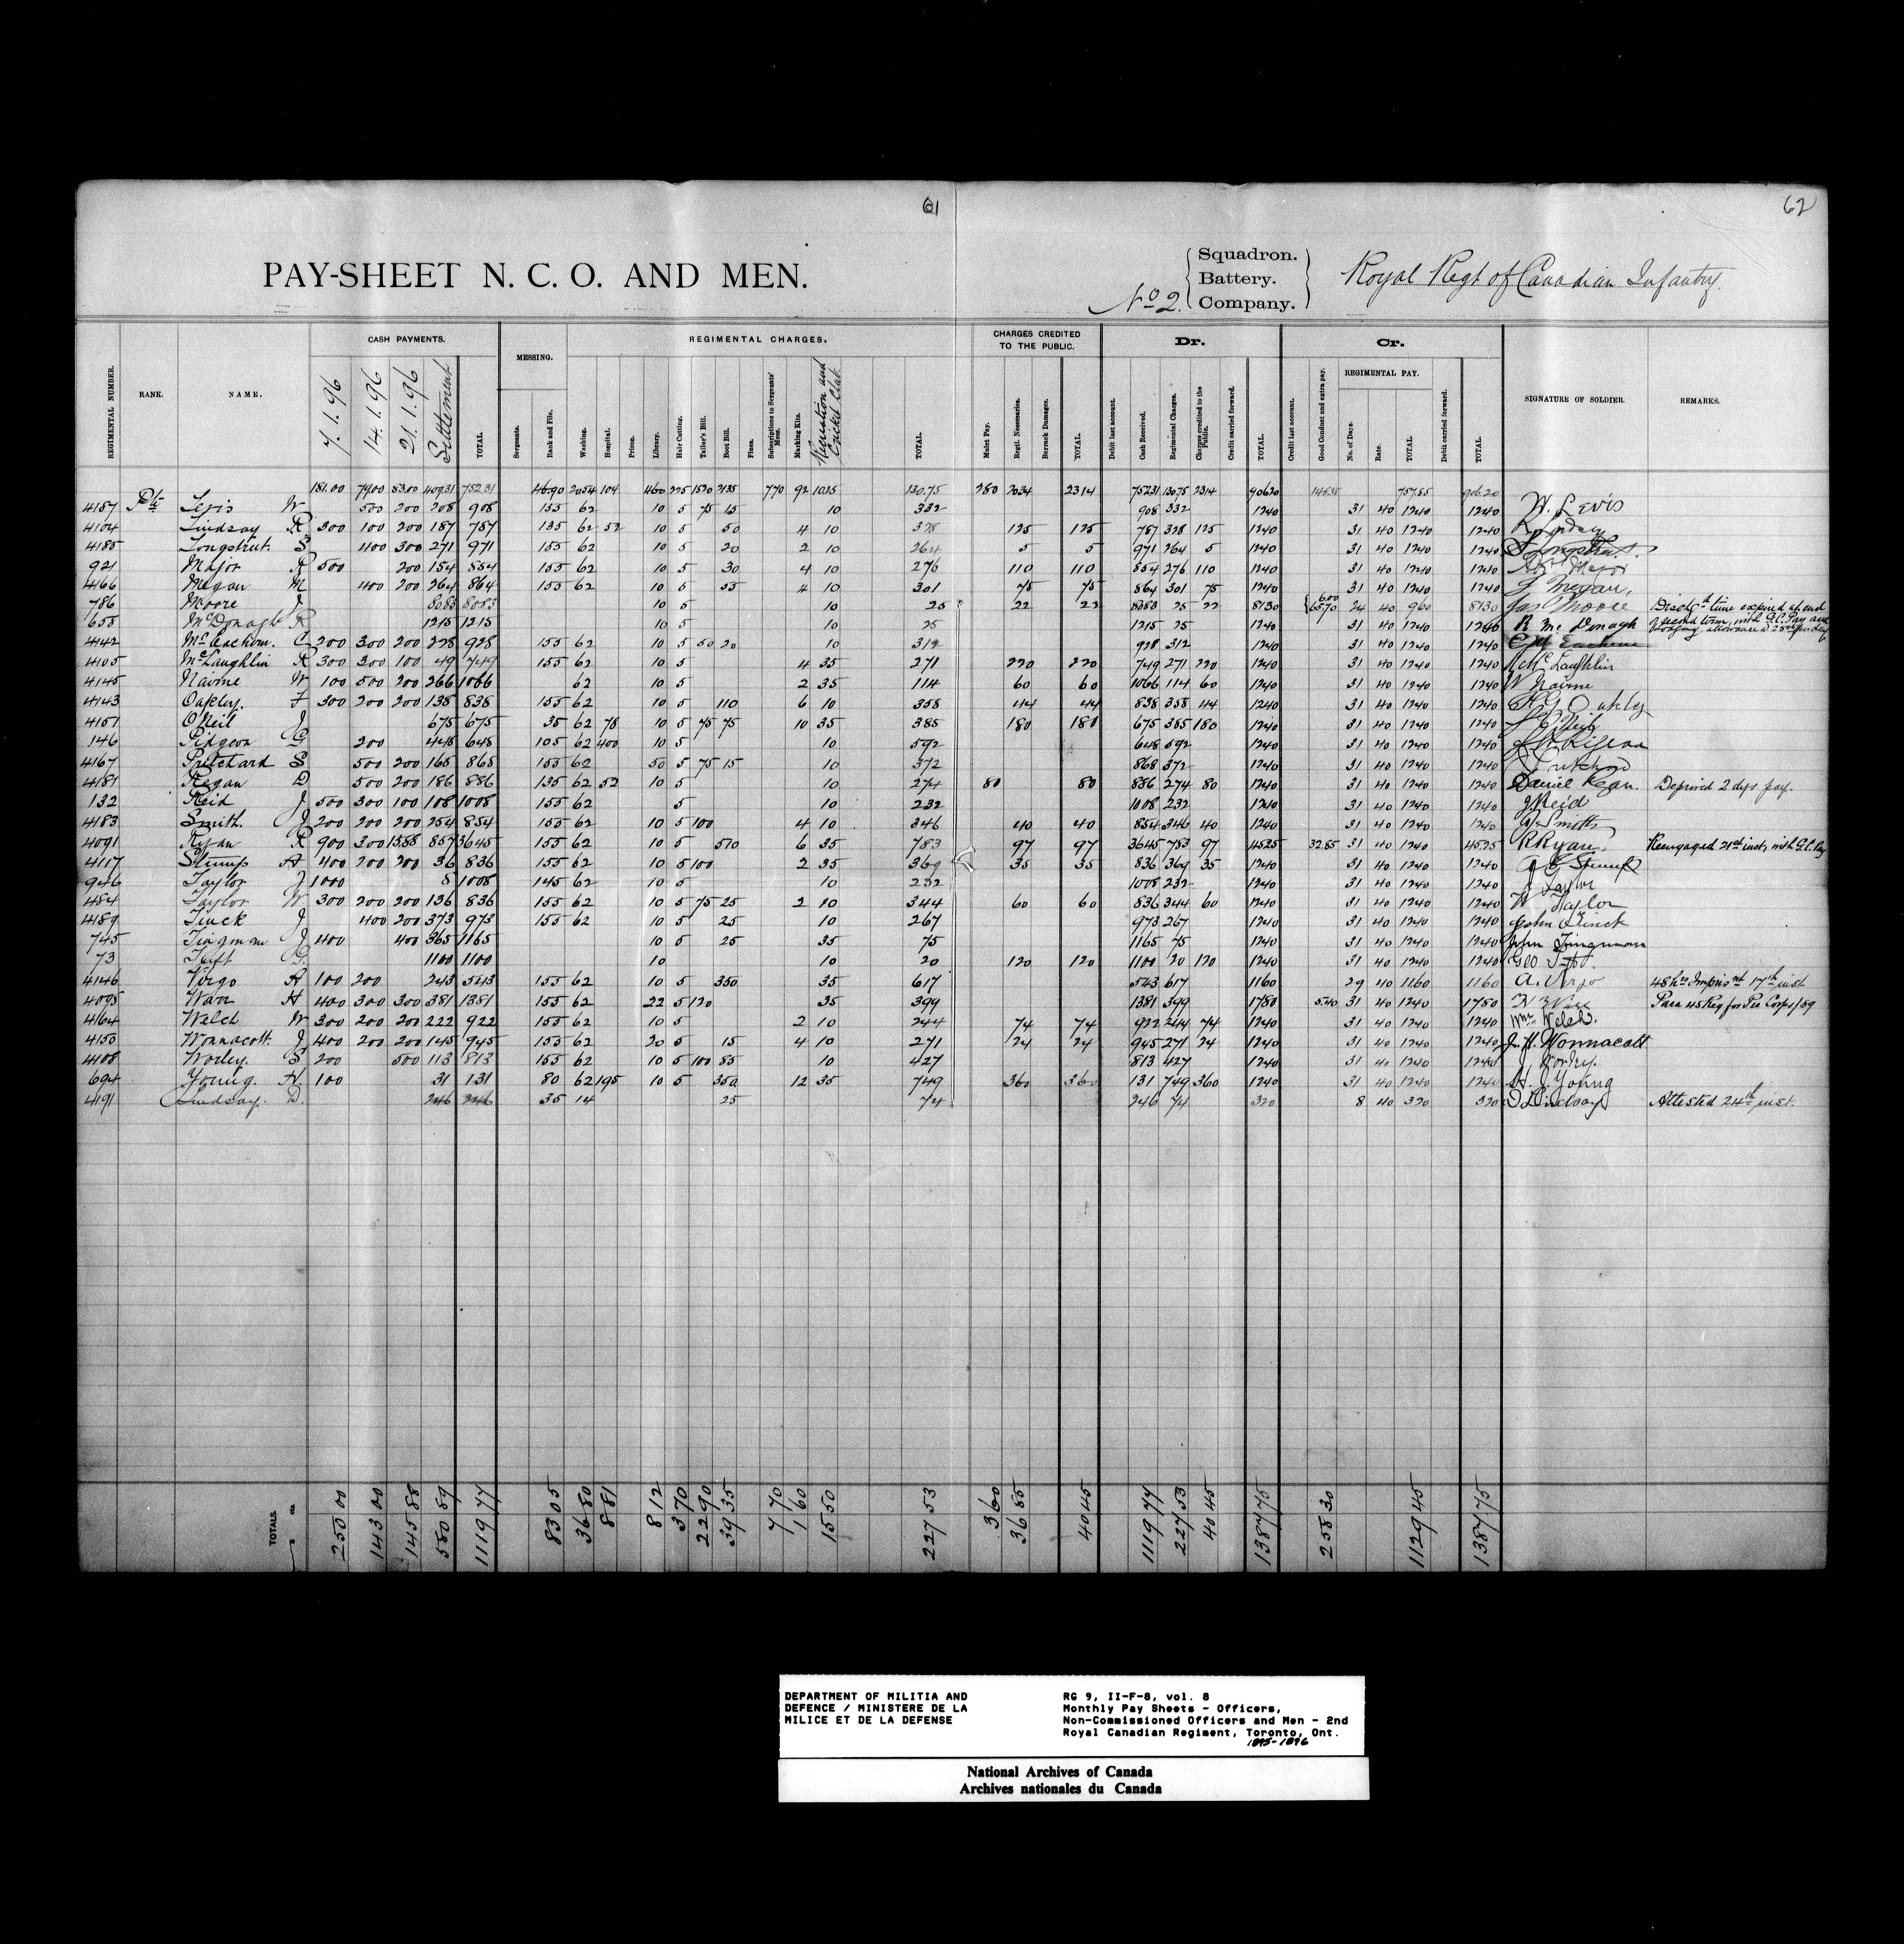 61
62
PAY-SHEET N. C. O. AND MEN.
No 2. Squadron. Battery. Company. Royal Regt of Canadian Infantry.
REGIMENTAL NUMBER. RANK. NAME. CASH PAYMENTS. MESSING. REGIMENTAL CHARGES. CHARGES CREDITED TO THE PUBLIC. Dr. Cr. SIGNATURE OF SOLDIER. REMARKS.
REGIMENTAL PAY.
7.1.96 14.1.96 21.1.96 Settlement TOTAL. Sergeants. Rank and File. Washing. Hospital. Prison. Library. Hair Cutting. Tailor's Bill. Boot Bill. Fines. Subscriptions to Sergeants' Mess. Marking Kits. Recreation and Cricket Club. TOTAL. Mulct Pay. Regtl. Necessaries. Barrack Damages. TOTAL. Debit last account. Cash Received. Regimental Charges. Charges credited to the Public. Credit carried forward. TOTAL. Credit last account. Good Conduct and extra pay. No. of Days. Rate. TOTAL. Debit carried forward. TOTAL.
181.00 79.00 83.00 409.31 752.31 46.90 20.54 104 460 225 1520 2135 770 92 1025 130.75 280 2034 2314 75231 13075 2314 90620 14835 75785 906.20
4157 Pte W 500 200 208 908 155 62 10 5 75 15 10 332 908 332 1240 31 40 1240 1240 W. Levis
4104 Lindsay R 300 100 200 187 787 135 62 52 10 5 50 4 10 328 125 125 787 328 125 1240 31 40 1240 1240
4185 Longstreet. S 400 300 271 971 155 62 10 5 20 2 10 264 5 5 971 264 5 1240 31 40 1240 1240
921 Major R 500 200 154 854 155 62 10 5 30 4 10 276 110 110 854 276 110 1240 31 40 1240 1240 Major
4166 Megan M 400 200 264 864 155 62 10 5 55 4 10 301 75 75 864 301 75 1240 31 40 1240 1240 Megan,
786 Moore J 8083 8083 10 5 10 25 22 22 8083 25 22 8130 600 6570 24 40 960 8130 Jas Moore Dischd time expired at end of second term, with G.C. Pay and
655 McDonagh R 1215 1215 10 5 10 25 1215 25 1240 31 40 1240 1240 R Mc Donagh lodging allowance
4142 McEachern. C 200 300 200 228 928 155 62 10 5 50 20 10 312 928 312 1240 31 40 1240 1240
4105 McLaughlin R 300 300 100 49 749 155 62 10 5 4 35 271 220 220 749 271 220 1240 31 40 1240 1240 McLaughlin
4145 Nairne W 100 500 200 266 1066 62 10 5 2 35 114 60 60 1066 114 60 1240 31 40 1240 1240 W Nairne
4143 Oakley. F 300 200 200 138 838 155 62 10 5 110 6 10 358 44 44 838 358 44 1240 31 40 1240 1240 Oakley
4151 ONeil J 675 675 35 62 78 10 5 75 75 10 35 385 180 180 675 385 180 1240 31 40 1240 1240
146 Pidgeon G 200 448 648 105 62 400 10 5 10 592 648 592 1240 31 40 1240 1240
4167 Pritchard S 500 200 168 868 155 62 50 5 75 15 10 372 868 372 1240 31 40 1240 1240
4181 Regan D 500 200 186 886 135 62 52 10 5 10 274 80 80 886 274 80 1240 31 40 1240 1240 Daniel Regan. Deprived 2 dys pay.
132 Reid J 500 300 100 108 1008 155 62 5 10 232 1008 232 1240 31 40 1240 1240 J Reid
4183 Smith. J 200 200 200 254 854 155 62 10 5 100 4 10 346 40 40 854 346 40 1240 31 40 1240 1240 Smith
4091 Ryan R 900 300 1588 857 3645 155 62 10 5 510 6 35 783 97 97 3645 783 97 4525 3285 31 40 1240 4525 R Ryan. Reengaged 21st inst, with G.C. Pay
4117 Stump A 400 200 200 36 836 155 62 10 5 100 2 35 369 35 35 836 369 35 1240 31 40 1240 1240 Stump
946 Taylor J 1000 8 1008 145 62 10 5 10 232 1008 232 1240 31 40 1240 1240 J Taylor
484 Taylor W 300 200 200 136 836 155 62 10 5 75 25 2 10 344 60 60 836 344 60 1240 31 40 1240 1240 W Taylor
4189 Tinck J 400 200 373 973 155 62 10 5 25 10 267 973 267 1240 31 40 1240 1240 John Tinck
745 Tingman J 400 400 365 1165 10 5 25 35 75 1165 75 1240 31 40 1240 1240 John
73 Tuft G. 1100 1100 10 10 20 120 120 1100 20 120 1240 31 40 1240 1240 Geo
4146 Virgo A 100 200 243 543 155 62 10 5 350 35 617 543 617 1160 29 40 1160 1160 A. Virgo 48 hrs Imprisnt 17th inst
4095 Warr H 400 300 300 381 1381 155 62 22 5 120 35 399 1381 399 1780 540 31 40 1240 1780 Para 45 Reg for Per Corps 1/89
4164 Welch W 300 200 200 222 922 155 62 10 5 2 10 244 74 74 922 244 74 1240 31 40 1240 1240 Wm Welch.
4150 Wonnacott. J 400 200 200 145 945 155 62 20 5 15 4 10 271 24 24 945 271 24 1240 31 40 1240 1240 J. H. Wonnacott
4108 Worley. S 200 500 113 813 155 62 10 5 100 85 10 427 813 427 1240 31 40 1240 1240 Worley.
694 Young. H. 100 31 131 80 62 195 10 5 350 12 35 749 360 360 131 749 360 1240 31 40 1240 1240 H. J. Young
4191 Lindsay. D. 246 246 35 14 25 74 246 74 320 8 40 320 320 D Lindsay Attested 24th inst.
TOTALS. 250 00 143 00 145 88 580 89 1119 77 83 05 36 80 8 81 8 12 3 70 22 90 39 35 7 70 1 60 15 50 227 53 3 60 36 85 40 45 1119 77 227 53 40 45 1387 75 258 30 1129 45 1387 75
DEPARTMENT OF MILITIA AND
DEFENCE / MINISTERE DE LA
MILICE ET DE LA DEFENSE
RG 9, II-F-8, vol. 8
Monthly Pay Sheets - Officers,
Non-Commissioned Officers and Men - 2nd
Royal Canadian Regiment, Toronto, Ont.
1895-1896
National Archives of Canada
Archives nationales du Canada